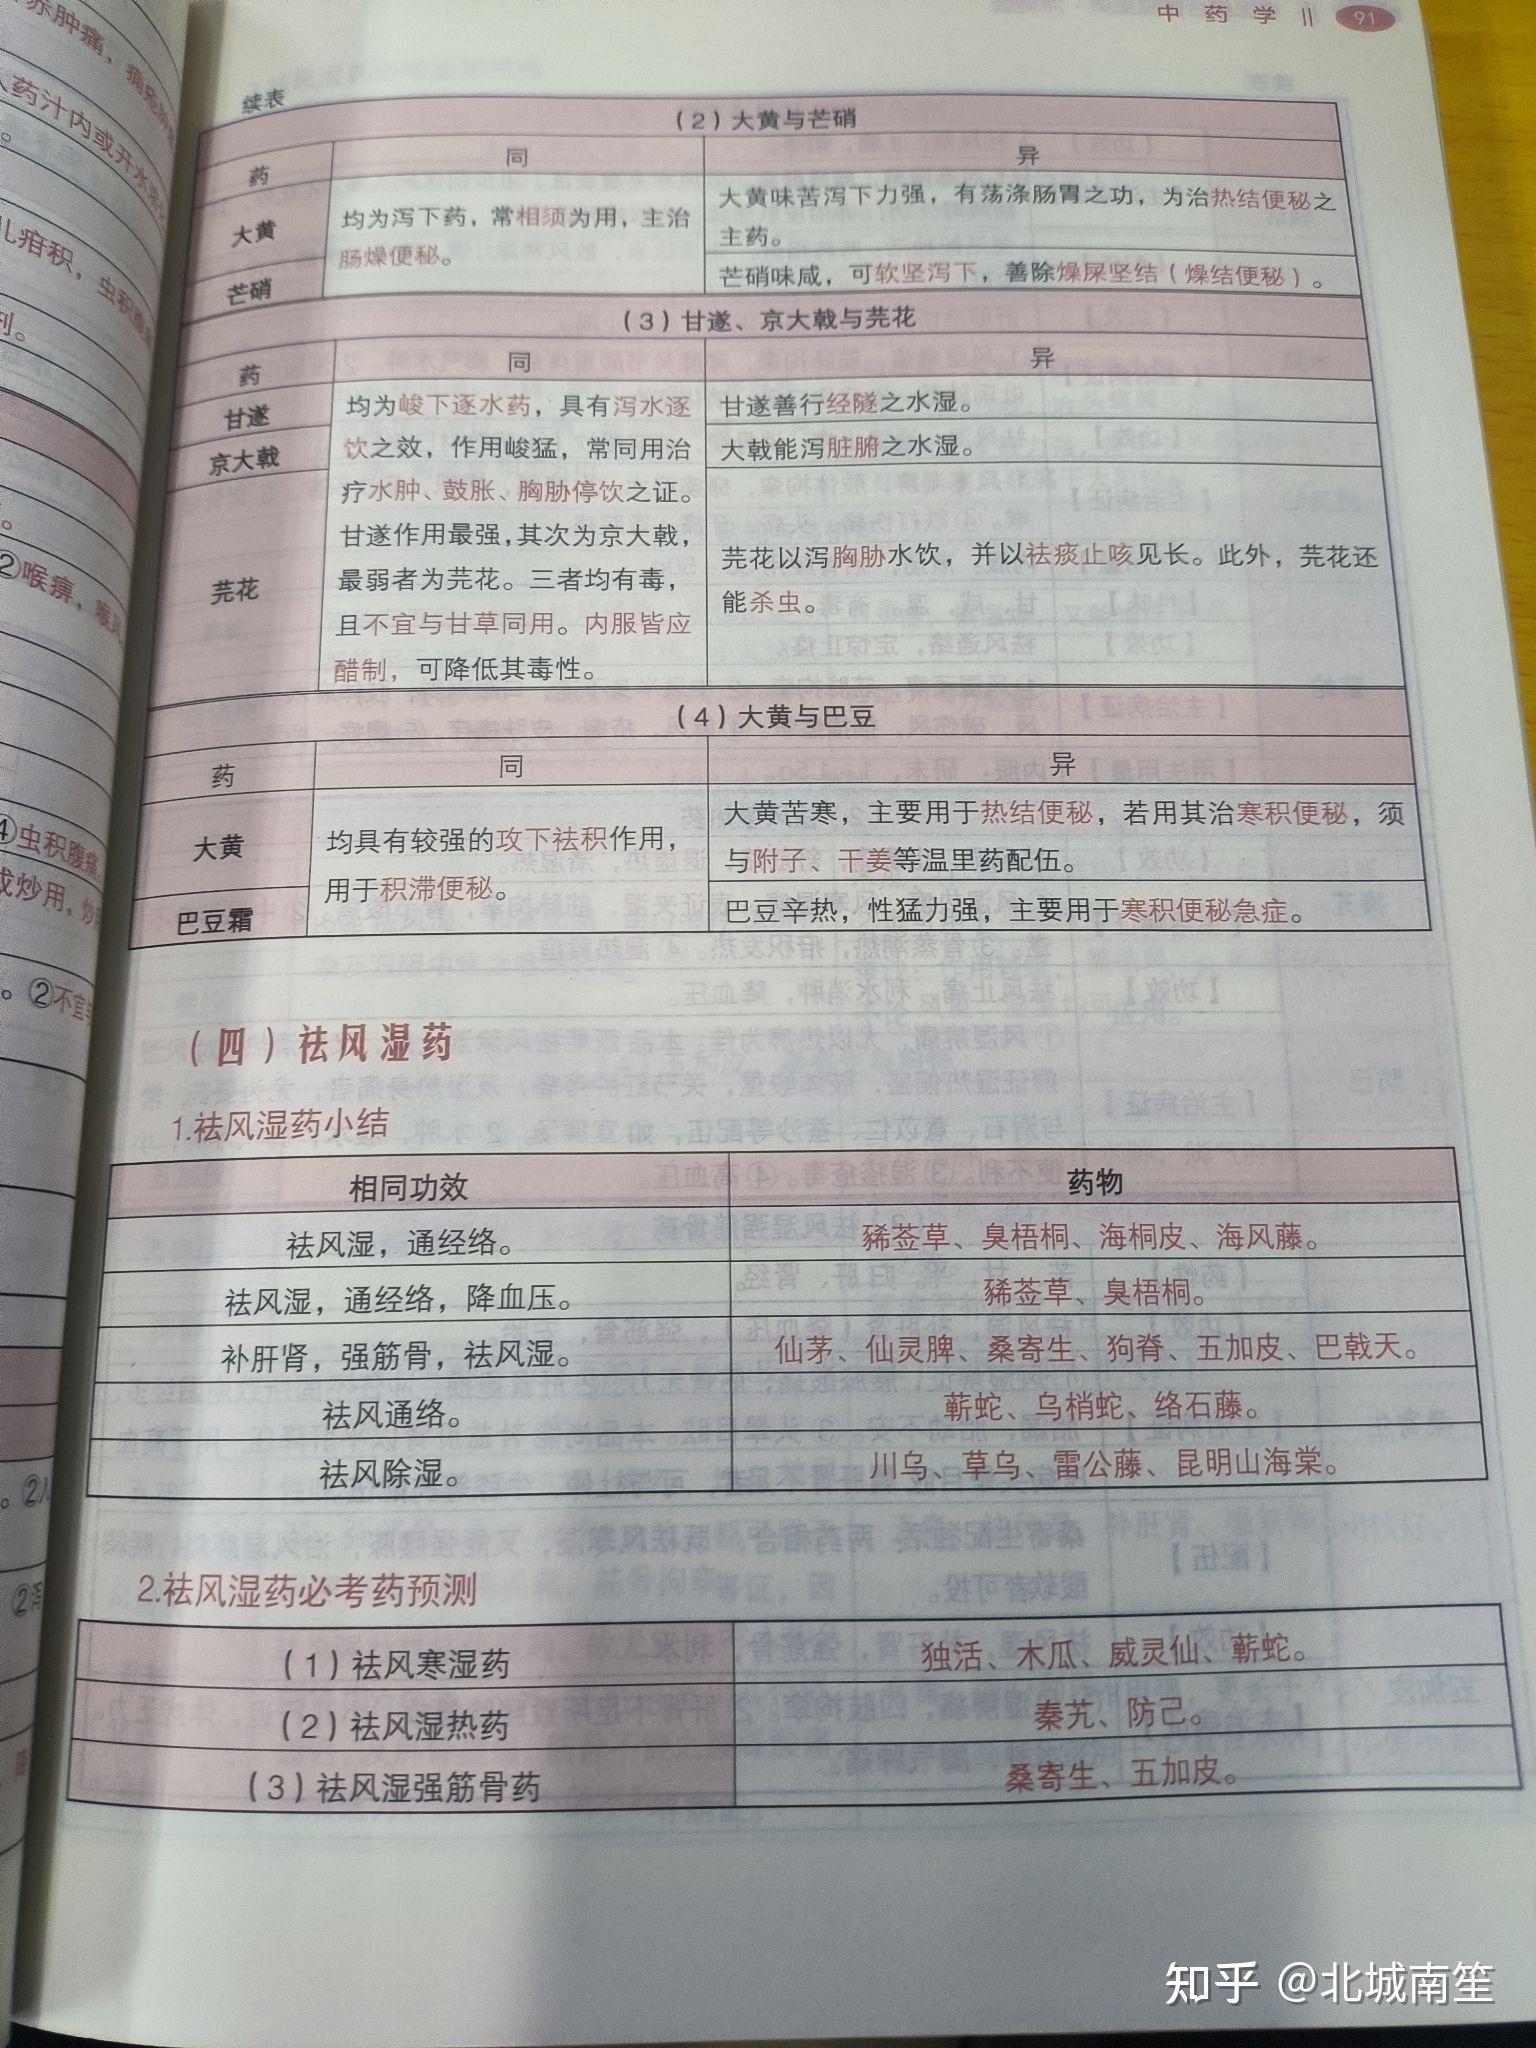 中药学 || 91
续表
（2）大黄与芒硝
药 同 异
大黄
芒硝
均为泻下药，常相须为用，主治
肠燥便秘。
大黄味苦泻下力强，有荡涤肠胃之功，为治热结便秘之
主药。
芒硝味咸，可软坚泻下，善除燥屎坚结（燥结便秘）。
（3）甘遂、京大戟与芫花
药 同 异
甘遂
京大戟
芫花
均为峻下逐水药，具有泻水逐
饮之效，作用峻猛，常同用治
疗水肿、鼓胀、胸胁停饮之证。
甘遂作用最强，其次为京大戟，
最弱者为芫花。三者均有毒，
且不宜与甘草同用。内服皆应
醋制，可降低其毒性。
甘遂善行经隧之水湿。
大戟能泻脏腑之水湿。
芫花以泻胸胁水饮，并以祛痰止咳见长。此外，芫花还
能杀虫。
（4）大黄与巴豆
药 同 异
大黄
巴豆霜
均具有较强的攻下祛积作用，
用于积滞便秘。
大黄苦寒，主要用于热结便秘，若用其治寒积便秘，须
与附子、干姜等温里药配伍。
巴豆辛热，性猛力强，主要用于寒积便秘急症。
（四）祛风湿药
1.祛风湿药小结
相同功效 药物
祛风湿，通经络。 豨莶草、臭梧桐、海桐皮、海风藤。
祛风湿，通经络，降血压。 豨莶草、臭梧桐。
补肝肾，强筋骨，祛风湿。 仙茅、仙灵脾、桑寄生、狗脊、五加皮、巴戟天。
祛风通络。 蕲蛇、乌梢蛇、络石藤。
祛风除湿。 川乌、草乌、雷公藤、昆明山海棠。
2.祛风湿药必考药预测
（1）祛风寒湿药 独活、木瓜、威灵仙、蕲蛇。
（2）祛风湿热药 秦艽、防己。
（3）祛风湿强筋骨药 桑寄生、五加皮。
知乎 @北城南笙